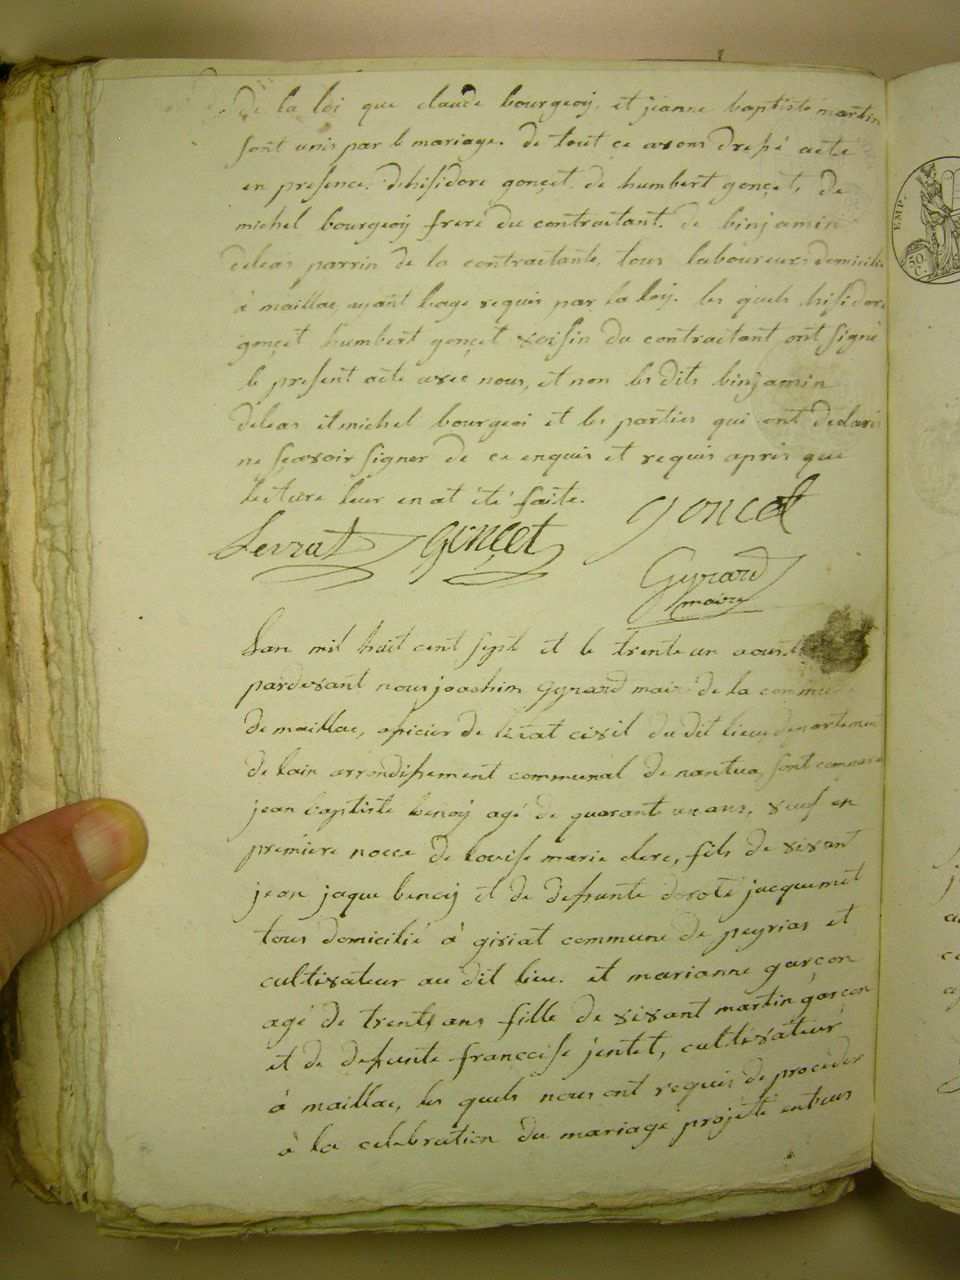 de la loi que claude bourgeoij, et jeanne baptiste martin
sont unis par le mariage. de tout ce avons dressé acte
en presence. dehisidore gonçet. de humbert gonçet, de
michel bourgeoij frere du contractant. de binjamin
deleas parrin de la contractante, tous laboureurs domicilié
à maillac, ayant lage requis par la loij. les quels hisidore
gonçet humbert gonçet voisin du contractant ont signé
le present acte avec nous, et non les dits binjamin
deleas et michel bourgeoi et les parties qui ont declaré
ne sçavoir signer de ce enquis et requis apres que
lecture leur en at été faite.
Levrat Gonçet goncet
Gyrard
maire
Lan mil huit cent sept et le trente un
pardevant nous joachim gyrard maire de la commune
de maillac, oficier de létat civil du dit lieu departement
de lain arrondissement communal de nantua, sont comparu
jean baptiste benoij agé de quarant un ans, veuf en
premiere nocce de louise marie clerc, fils de vivant
jean jaque benoij et de defunte doroté jacquemet
tous domicilié à giriat commune de peyrias et
cultivateur au dit lieu. et marianne garçon
agé de trente ans fille de vivant martin garçon
et de defunte francoise jentet, cultivateur
à maillac, les quels nous ont requis de proceder
à la celebration du mariage projetté entreus
EMP.
50
C.